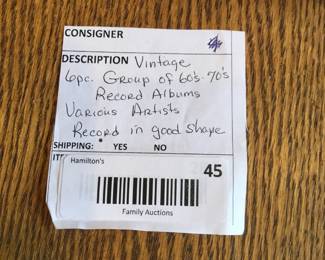 CONSIGNER
DESCRIPTION Vintage
6pc. Group of 60's-70's
Record Albums
Various Artists
Record in good shape
SHIPPING: YES NO
Hamilton's
45
Family Auctions